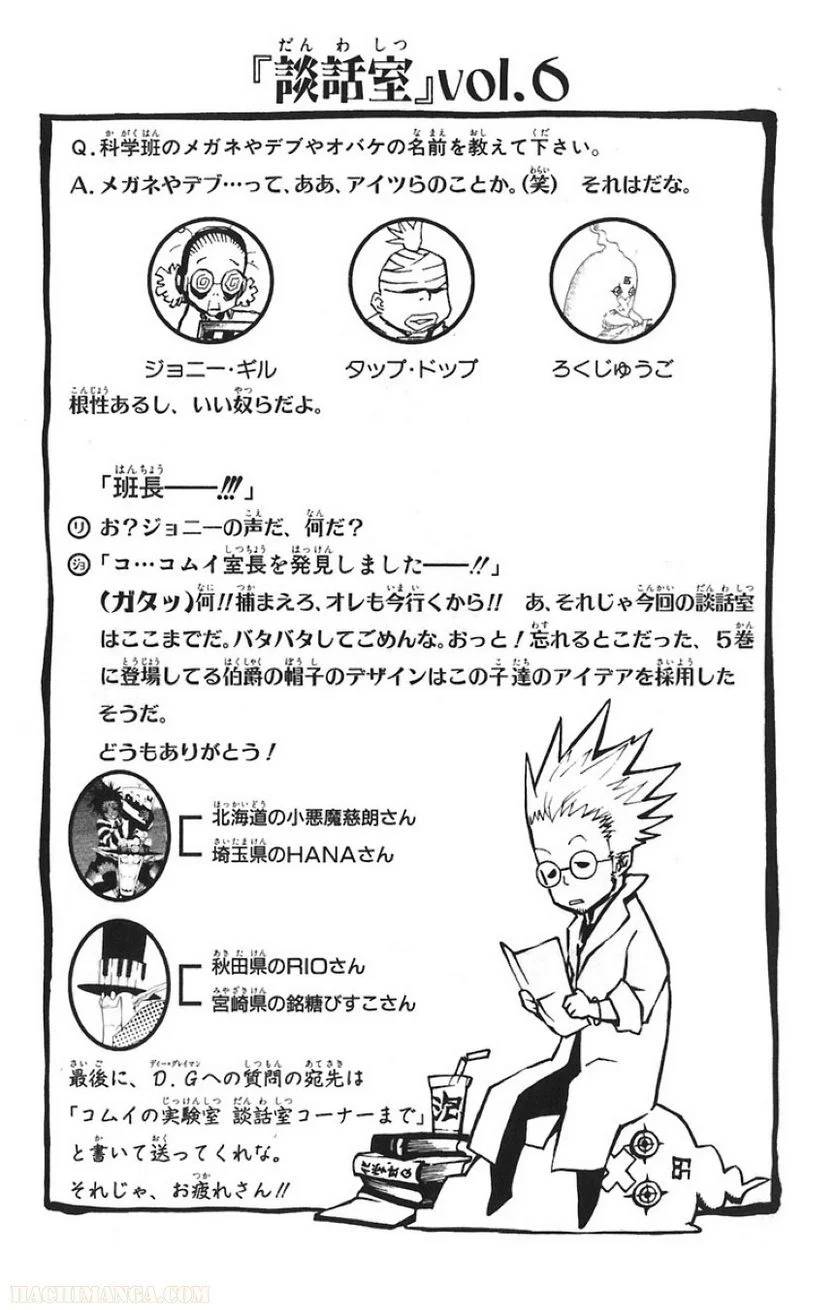 『談話室』vol.6
Q.科学班のメガネやデブやオバケの名前を教えて下さい。
A.メガネやデブ…って、ああ、アイツらのことか。(笑) それはだな。
ジョニー・ギル
タップ・ドップ
ろくじゅうご
根性あるし、いい奴らだよ。
「班長――!!!」
リ お?ジョニーの声だ、何だ?
ジョ 「コ…コムイ室長を発見しました――!!」
(ガタッ)何!!捕まえろ、オレも今行くから!! あ、それじゃ今回の談話室
はここまでだ。バタバタしてごめんな。おっと!忘れるとこだった、5巻
に登場してる伯爵の帽子のデザインはこの子達のアイデアを採用した
そうだ。
どうもありがとう!
北海道の小悪魔慈朗さん
埼玉県のHANAさん
秋田県のRIOさん
宮崎県の銘糖びすこさん
最後に、D.Gへの質問の宛先は
「コムイの実験室 談話室コーナーまで」
と書いて送ってくれな。
それじゃ、お疲れさん!!
HACHIMANGA.COM